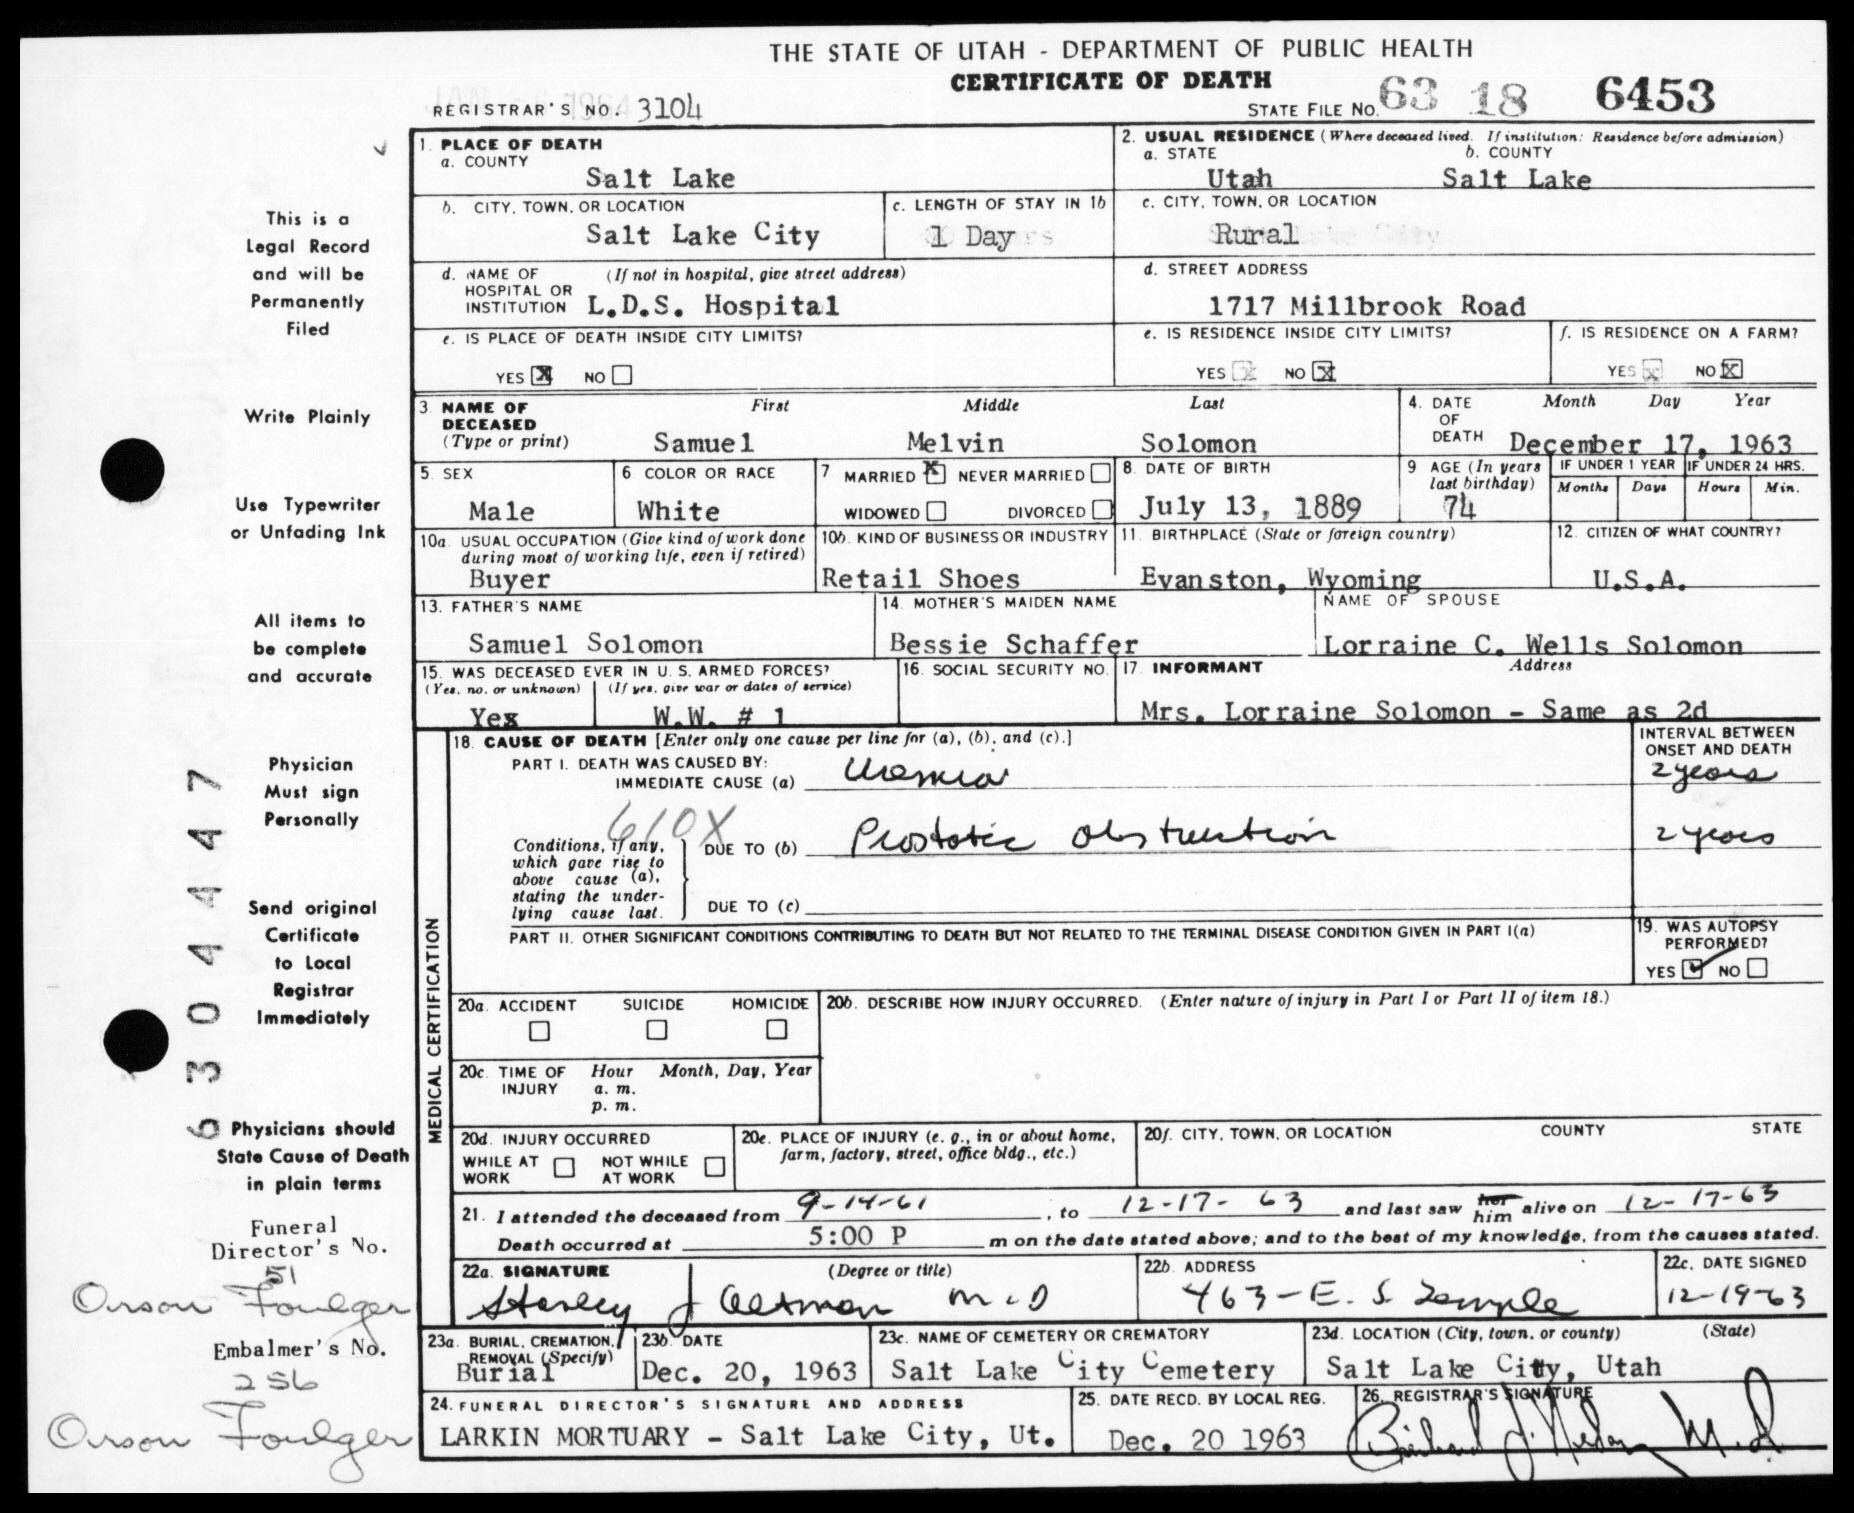 THE STATE OF UTAH - DEPARTMENT OF PUBLIC HEALTH
CERTIFICATE OF DEATH
REGISTRAR'S NO. 3104
STATE FILE NO. 63 18 6453
1. PLACE OF DEATH
a. COUNTY
Salt Lake
2. USUAL RESIDENCE (Where deceased lived. If institution: Residence before admission)
a. STATE b. COUNTY
Utah Salt Lake
b. CITY, TOWN, OR LOCATION
Salt Lake City
c. LENGTH OF STAY IN 1b
1 Day
c. CITY, TOWN, OR LOCATION
Rural
d. NAME OF HOSPITAL OR INSTITUTION (If not in hospital, give street address)
L.D.S. Hospital
d. STREET ADDRESS
1717 Millbrook Road
e. IS PLACE OF DEATH INSIDE CITY LIMITS?
YES X NO
e. IS RESIDENCE INSIDE CITY LIMITS?
YES X NO X
f. IS RESIDENCE ON A FARM?
YES X NO X
3. NAME OF DECEASED (Type or print)
First Middle Last
Samuel Melvin Solomon
4. DATE OF DEATH
Month Day Year
December 17, 1963
5. SEX
Male
6 COLOR OR RACE
White
7 MARRIED X NEVER MARRIED
WIDOWED DIVORCED
8. DATE OF BIRTH
July 13, 1889
9 AGE (In years last birthday)
74
IF UNDER 1 YEAR
Months Days
IF UNDER 24 HRS.
Hours Min.
10a. USUAL OCCUPATION (Give kind of work done during most of working life, even if retired)
Buyer
10b. KIND OF BUSINESS OR INDUSTRY
Retail Shoes
11. BIRTHPLACE (State or foreign country)
Evanston, Wyoming
12. CITIZEN OF WHAT COUNTRY?
U.S.A.
13. FATHER'S NAME
Samuel Solomon
14. MOTHER'S MAIDEN NAME
Bessie Schaffer
NAME OF SPOUSE
Lorraine C. Wells Solomon
15. WAS DECEASED EVER IN U. S. ARMED FORCES?
(Yes, no, or unknown) (If yes, give war or dates of service)
Yes W.W. # 1
16. SOCIAL SECURITY NO.
17. INFORMANT Address
Mrs. Lorraine Solomon - Same as 2d
MEDICAL CERTIFICATION
18. CAUSE OF DEATH [Enter only one cause per line for (a), (b), and (c).]
INTERVAL BETWEEN ONSET AND DEATH
PART I. DEATH WAS CAUSED BY:
IMMEDIATE CAUSE (a) Uremia 2 years
610X
Conditions, if any, which gave rise to above cause (a), stating the underlying cause last.
DUE TO (b) Prostatic Obstruction 2 years
DUE TO (c)
PART II. OTHER SIGNIFICANT CONDITIONS CONTRIBUTING TO DEATH BUT NOT RELATED TO THE TERMINAL DISEASE CONDITION GIVEN IN PART I(a)
19. WAS AUTOPSY PERFORMED?
YES NO
20a. ACCIDENT SUICIDE HOMICIDE
20b. DESCRIBE HOW INJURY OCCURRED. (Enter nature of injury in Part I or Part II of item 18.)
20c. TIME OF INJURY Hour Month, Day, Year
a. m.
p. m.
20d. INJURY OCCURRED
WHILE AT WORK NOT WHILE AT WORK
20e. PLACE OF INJURY (e. g., in or about home, farm, factory, street, office bldg., etc.)
20f. CITY, TOWN, OR LOCATION COUNTY STATE
21. I attended the deceased from 9-14-61, to 12-17-63 and last saw her him alive on 12-17-63
Death occurred at 5:00 P m on the date stated above; and to the best of my knowledge, from the causes stated.
22a. SIGNATURE (Degree or title)
Stanley J Altman M.D
22b. ADDRESS
463-E. S. Temple
22c. DATE SIGNED
12-19-63
23a. BURIAL, CREMATION, REMOVAL (Specify)
Burial
23b. DATE
Dec. 20, 1963
23c. NAME OF CEMETERY OR CREMATORY
Salt Lake City Cemetery
23d. LOCATION (City, town, or county) (State)
Salt Lake City, Utah
24. FUNERAL DIRECTOR'S SIGNATURE AND ADDRESS
LARKIN MORTUARY - Salt Lake City, Ut.
25. DATE RECD. BY LOCAL REG.
Dec. 20 1963
26. REGISTRAR'S SIGNATURE
M.D.
This is a
Legal Record
and will be
Permanently
Filed
Write Plainly
Use Typewriter
or Unfading Ink
All items to
be complete
and accurate
Physician
Must sign
Personally
Send original
Certificate
to Local
Registrar
Immediately
Physicians should
State Cause of Death
in plain terms
6304447
Funeral
Director's No.
51
Orson Foulger
Embalmer's No.
256
Orson Foulger